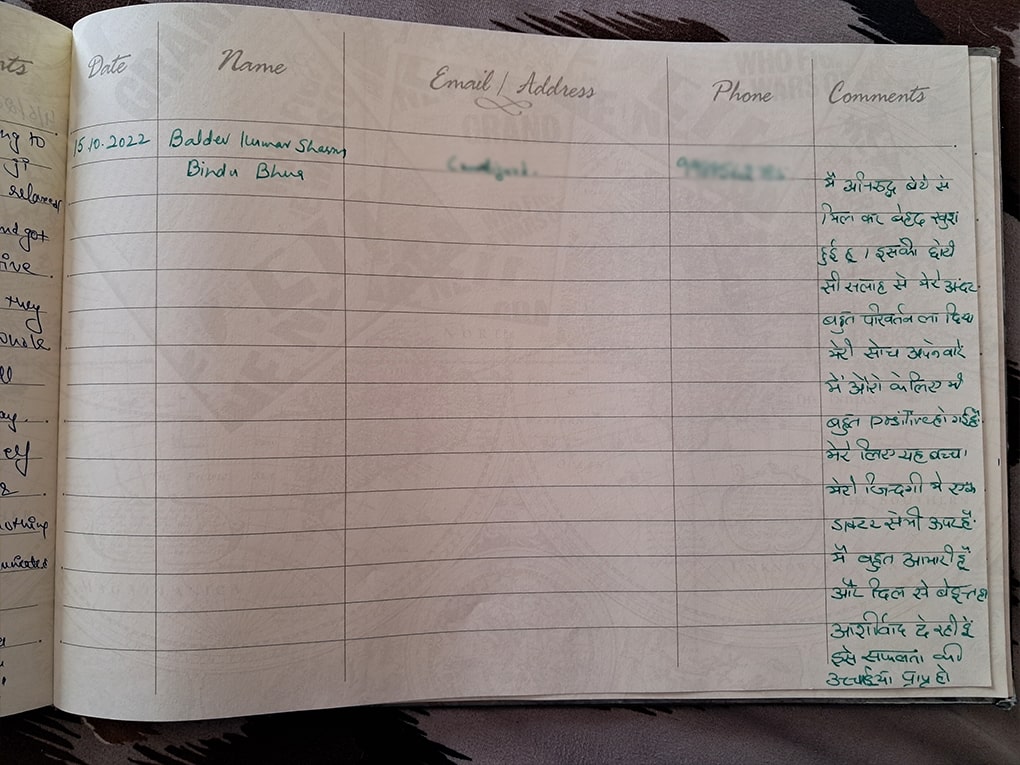 nts
Date Name Email / Address Phone Comments
ng to
15.10.2022 Baldev Kumar Sharma
ji Bindu
relaxed
and got
ive
they
whole
ell
ay.
ey
nothing
मैं अनिरुद्ध बेटे से
मिल कर बेहद खुश
हुई हूं । इसकी छोटी
सी सलाह से मेरे अंदर
बहुत परिवर्तन ला दिया
मेरी सोच अपने बारे
में औरो के लिए भी
बहुत positive हो गई है।
मेरे लिए यह बच्चा
मेरी जिन्दगी मे एक
डाक्टर से भी ऊपर है।
मैं बहुत आभारी हूँ
और दिल से बेइन्तहा
आशीर्वाद दे रही हूँ
इसे सफलता की
उच्चाईयां प्राप्त हो